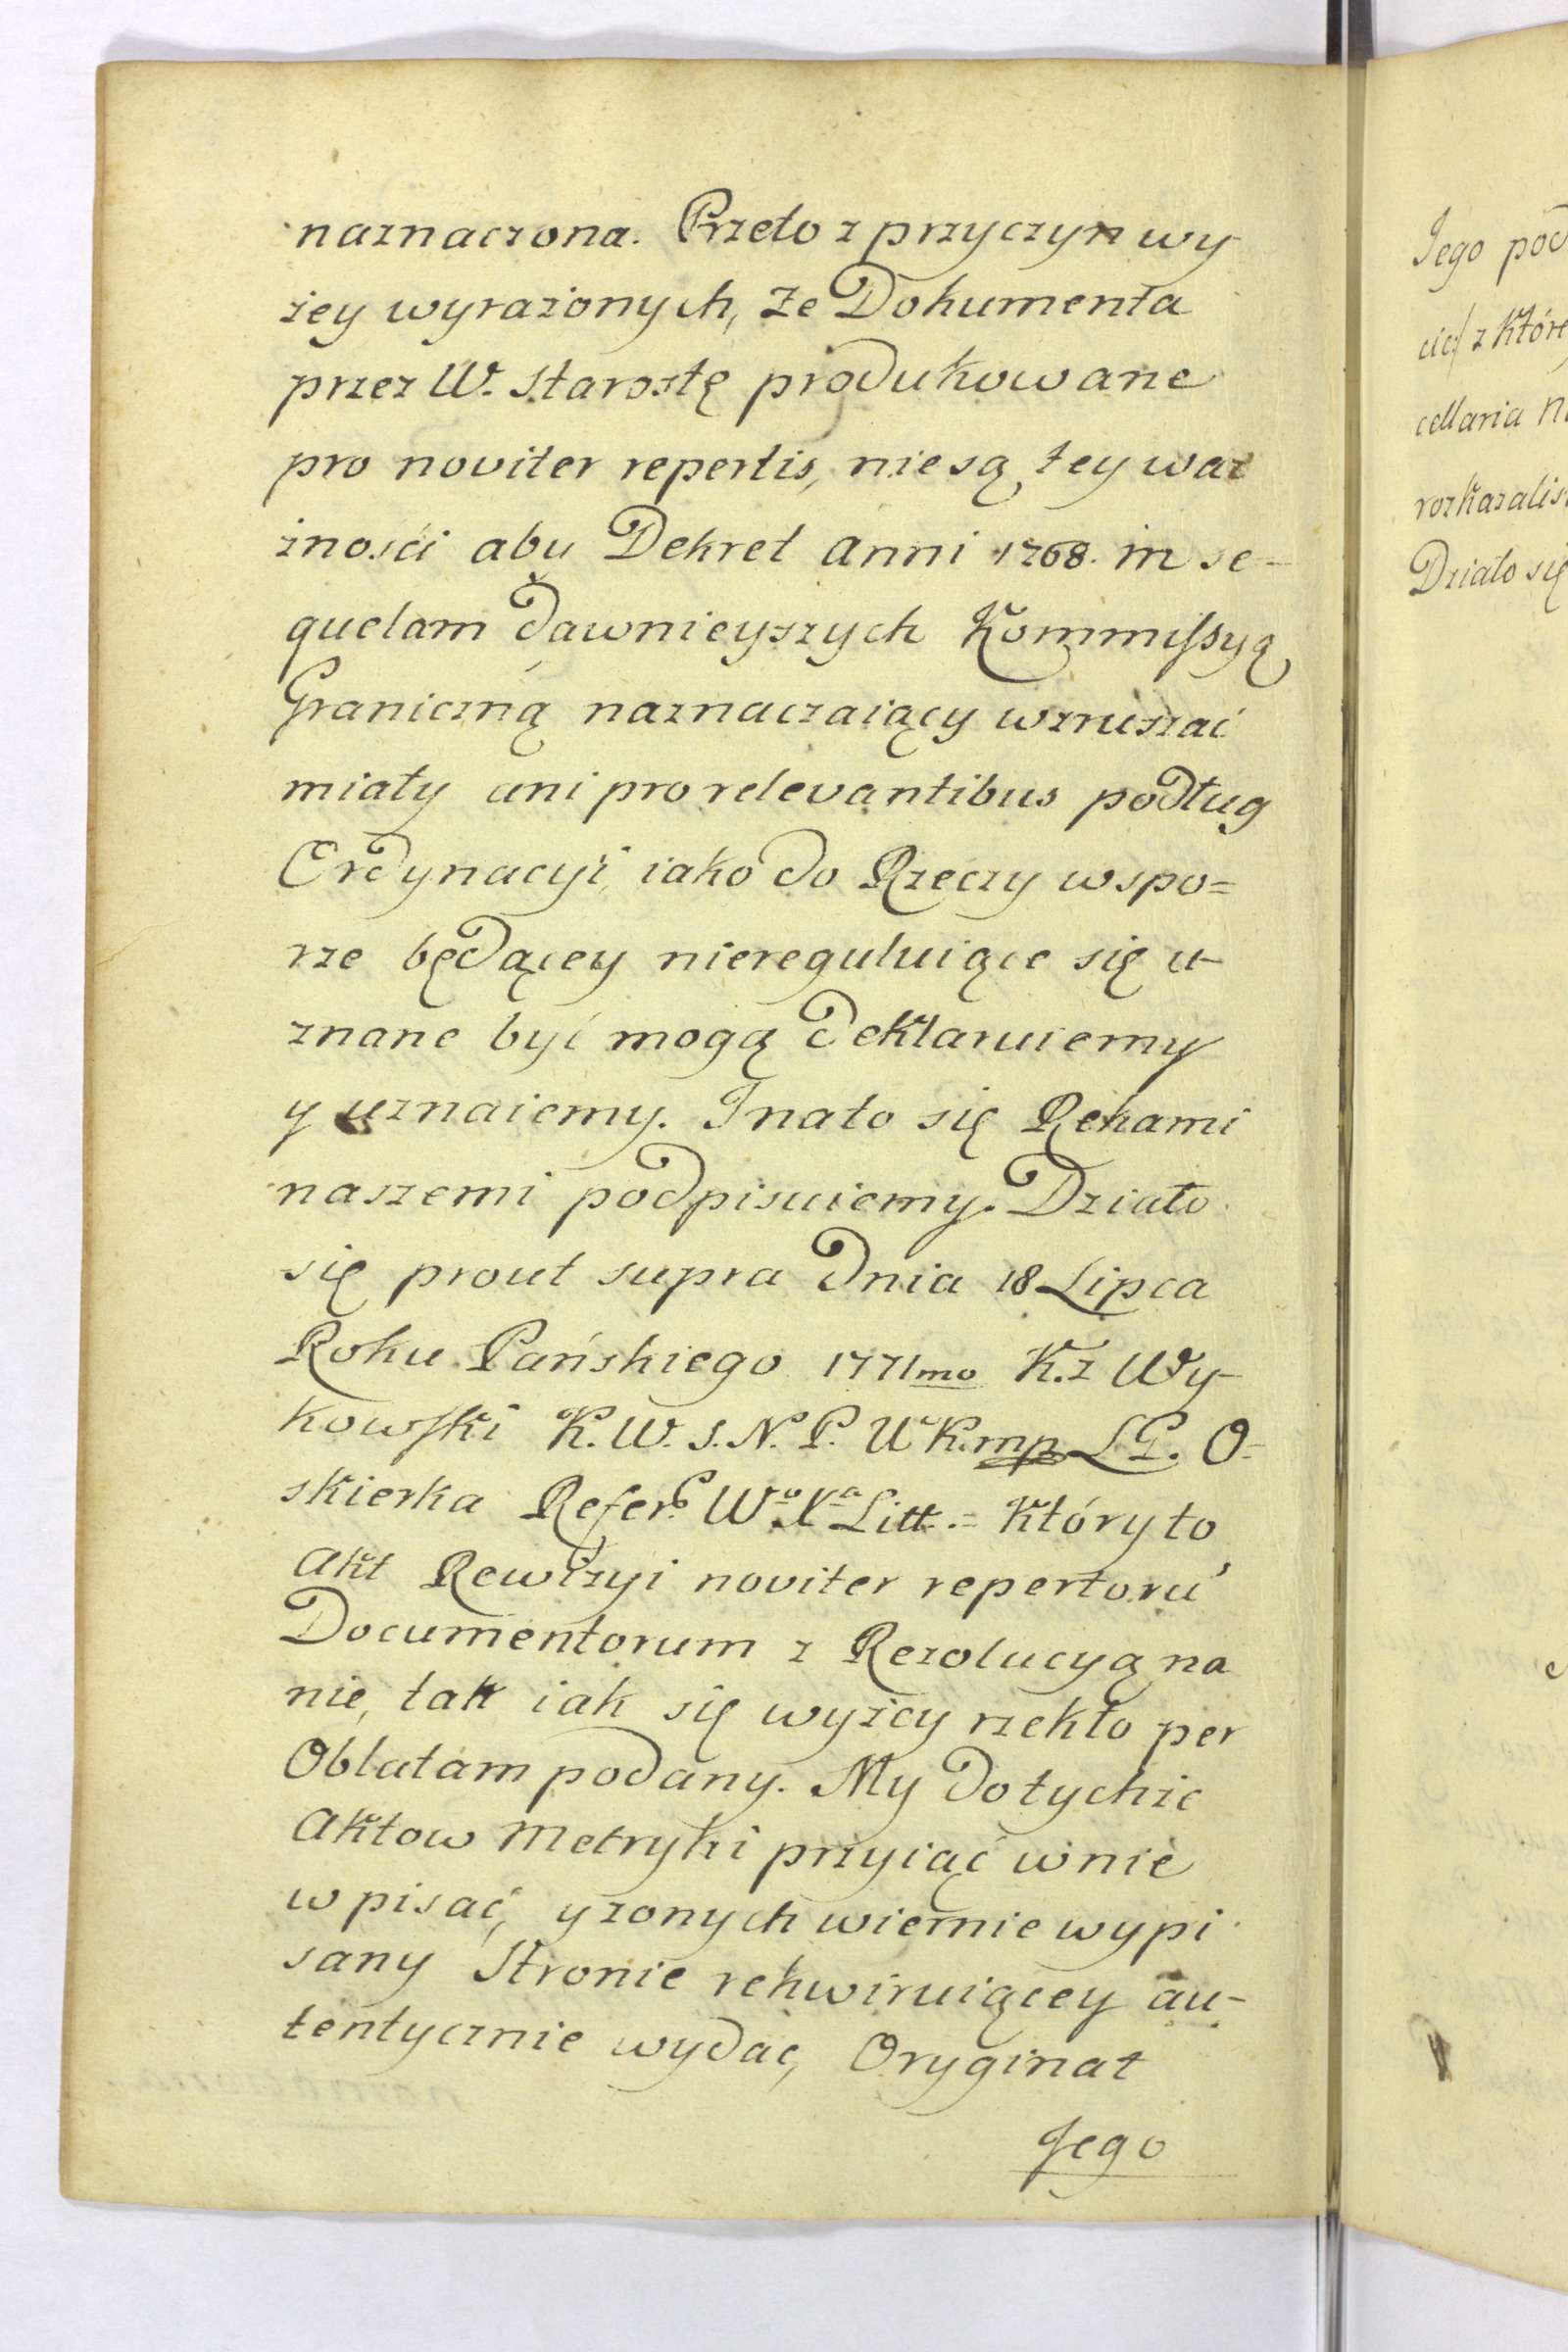 naznaczona. Przeto z przyczyn wy-
żey wyrażonych, że Dokumenta
przez W. Starostę produkowane
pro noviter repertis, nie są tey waż
żnosći aby Dekret Anni 1768. in se-
quelam dawnieyszych Kommissyą
Graniczną naznaczaiący wzruszać
miały ani pro relevantibus podług
Ordynacyi iako do Rzeczy wspo=
rze będącey niereguluiące się u-
znane być mogą deklaruiemy
y uznaiemy. I nato się Rękami
naszemi podpisuiemy. Działo
się prout supra dnia 18 Lipca
Roku Pańskiego 1771mo K. z Wy-
kowski K. W. S. N. P. W K. mp L. P. O=
skierka Refer. W. X. Litt. = który to
Akt Rewizyi noviter repertorú
Documentorum z Rezolucyą na
nie, tak iak się wyżey rzekło per
Oblatam podany. My do tychże
Aktow Metryki przyiąć w nie
wpisać, y zonych wiernie wypi
sany Stronie rekwiruiącey au-
tentycznie wydać, Oryginał
Jego
Jego pod
z któreg
cellaria
rozkazalis
Działo się